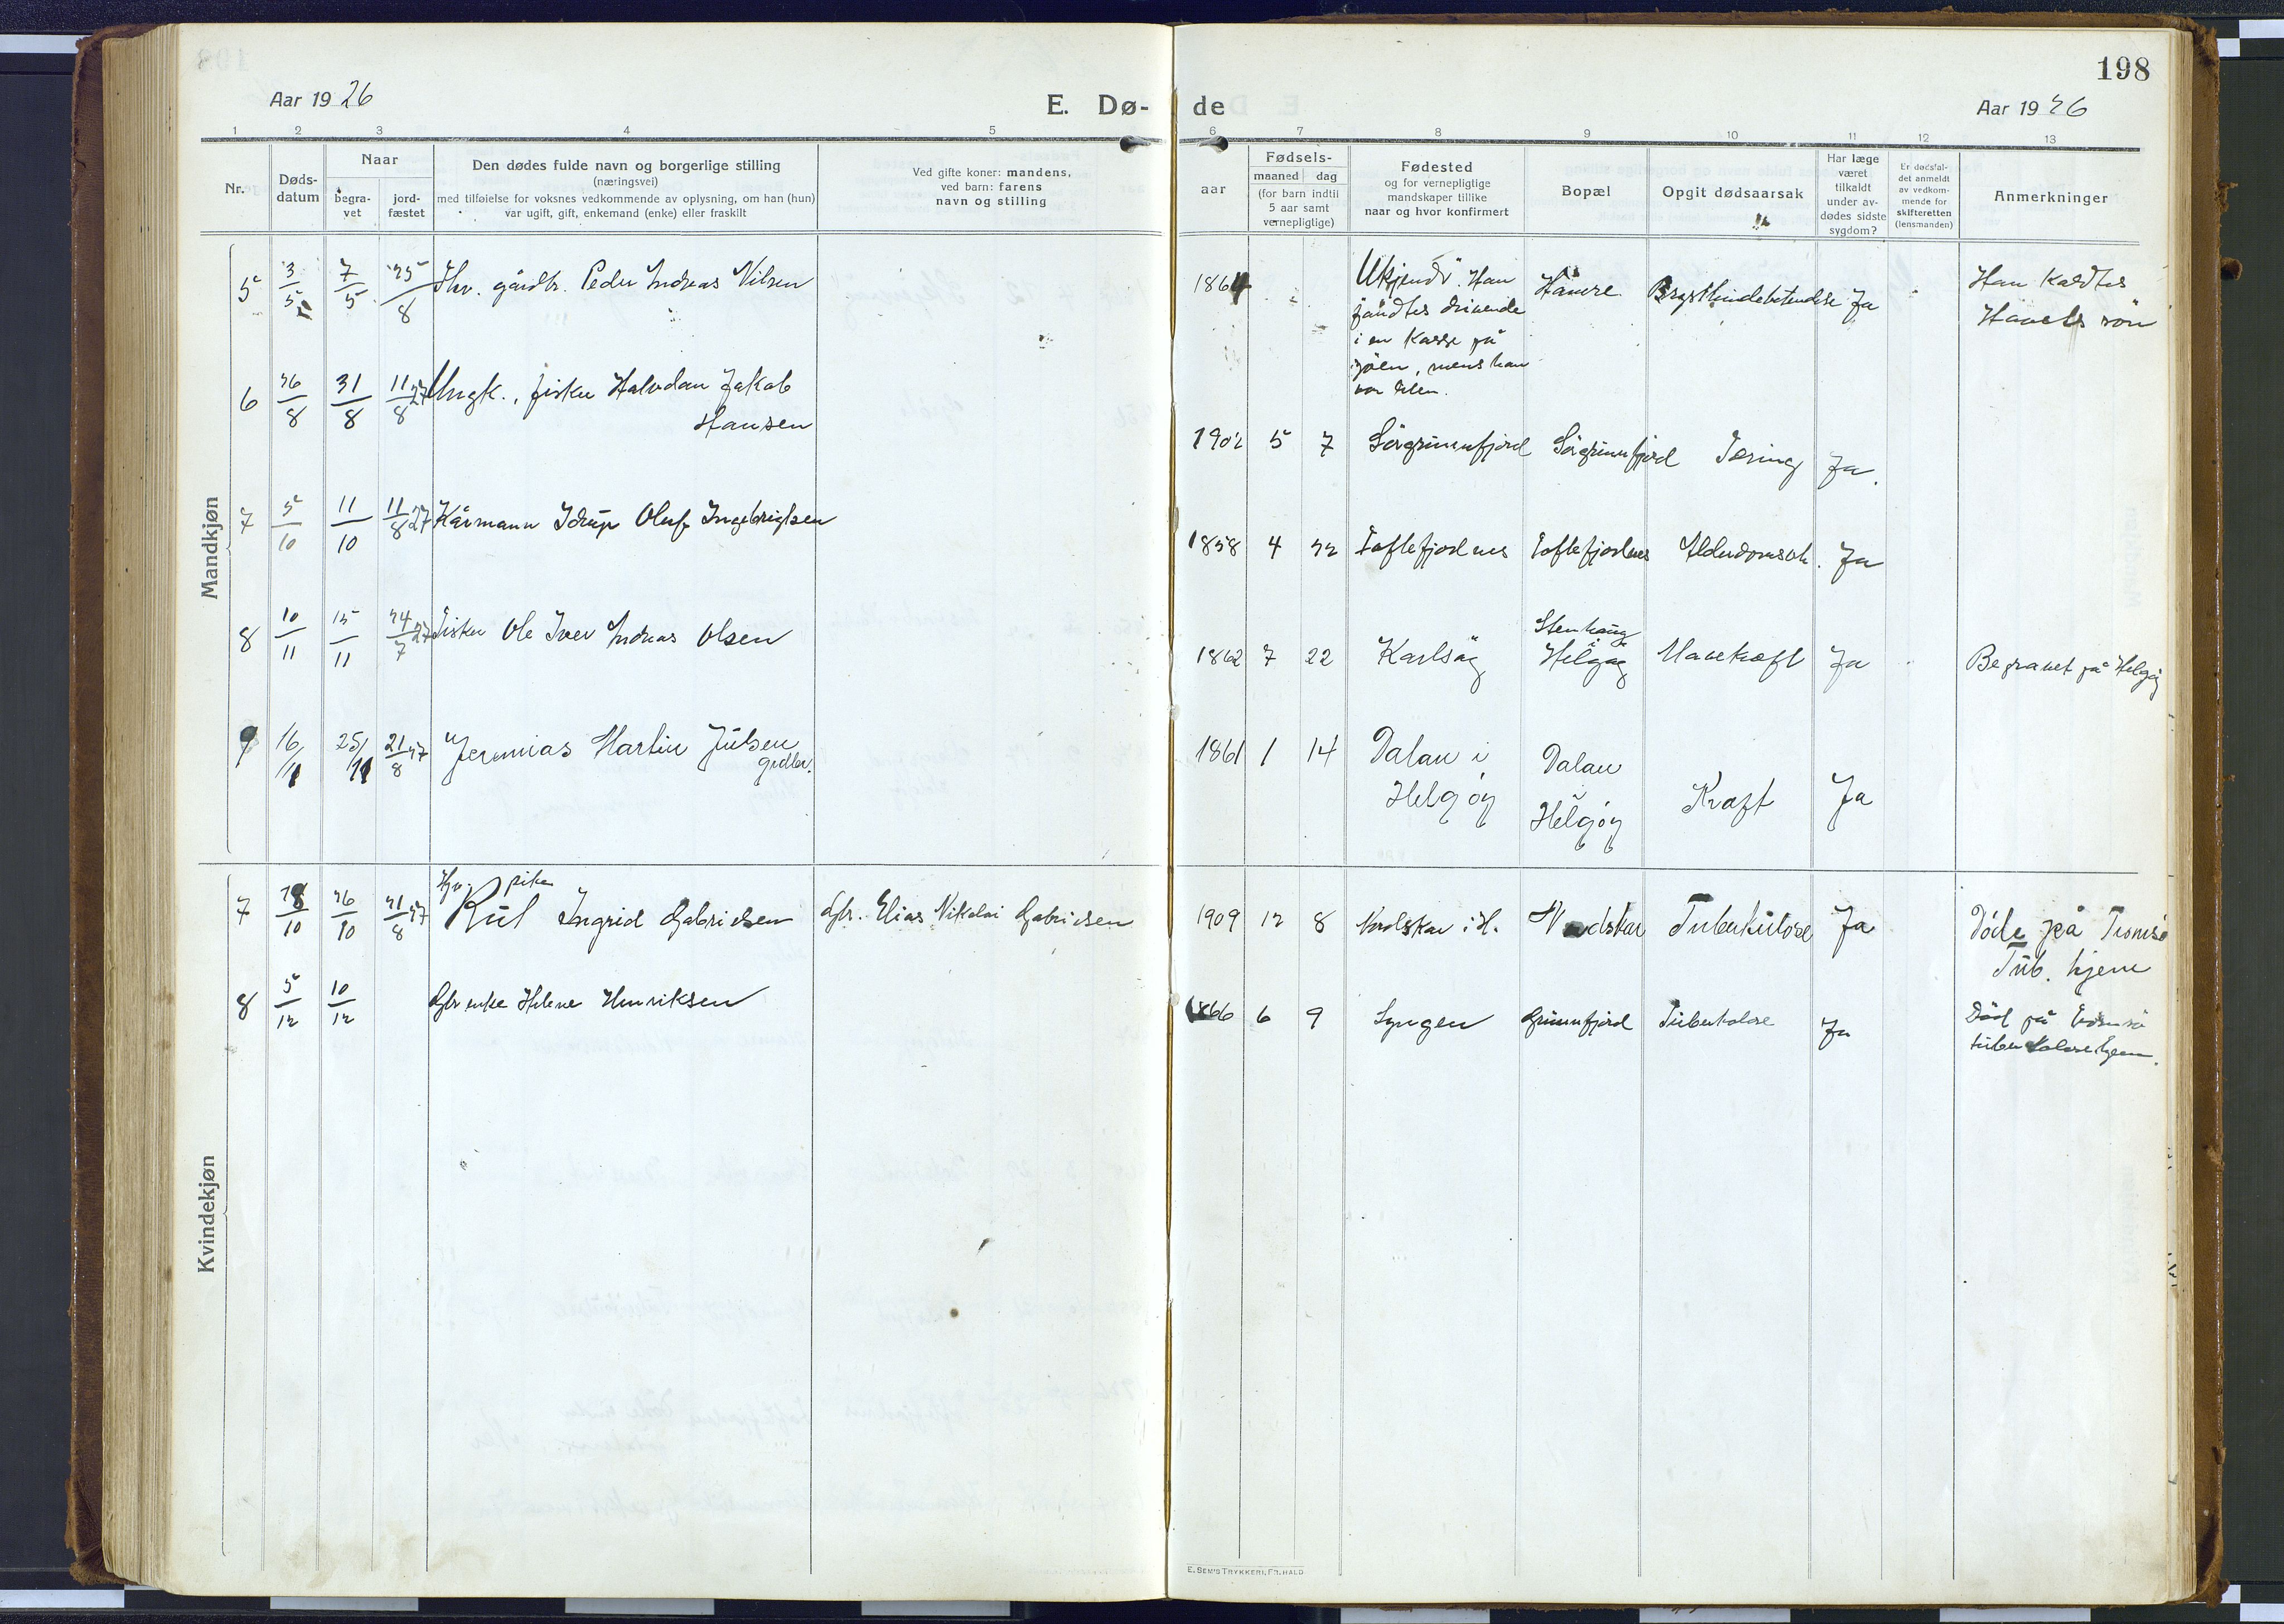 198
Aar 1926
E. Dø-
de
Aar 1926
1 2 3 4 5 6 7 8 9 10 11 12 13
Nr.
Døds-
datum
Naar
begra-
vet
jord-
fæstet
Den dødes fulde navn og borgerlige stilling
(næringsvei)
med tilføielse for voksnes vedkommende av oplysning, om han (hun)
var ugift, gift, enkemand (enke) eller fraskilt
Ved gifte koner: mandens,
ved barn: farens
navn og stilling
Fødsels-
aar
maaned dag
(for barn indtil
5 aar samt
vernepligtige)
Fødested
og for vernepligtige
mandskaper tillike
naar og hvor konfirmert
Bopæl
Opgit dødsaarsak
Har læge
været
tilkaldt
under av-
dødes sidste
sygdom?
Er dødsfal-
det anmeldt
av vedkom-
mende for
skifteretten
(lensmanden)
Anmerkninger
Mandkjøn
5 3/5 7/5 25/8 gårdbr. Peder Andreas Nilsen 1864 Ukjendt. Han Hamre Brysthindebetendelse Ja Han kaldtes
fandtes drivende
i en kasse på
sjöen, mens han
var liten.
6 26/8 31/8 11/8 27 Ungk., fisker Halvdan Jakob
Hansen
1902 5 7 Sörgrunnfjord Sörgrunnfjord Tæring Ja.
7 5/10 11/10 11/8 27 Kårmann Idrup Oluf Ingebrigtsen 1858 4 22 Toftefjordnes Toftefjordnes Alderdomssvk. Ja
8 10/11 15/11 24/7 27 Fisker Ole Iver Andreas Olsen 1862 7 22 Karlsöy Stenhaug
i Helgöy Mavekræft Ja Begravet på Helgöy
9 16/11 25/11 21/8 27 Jeremias Martin Julsen
grdbr.
1861 1 14 Dalan i
Helgöy
Dalan
i
Helgöy
Kræft Ja
Kvindekjøn
pike
7 18/10 26/10 21/8 27 Rut Ingrid Gabrielsen Gbr. Elias Nikolai Gabrielsen 1909 12 8 Nordskar i H. Nordskar Tuberkulose Ja Döde på Tromsö
Tub. hjem
8 5/12 10/12 Gbr enke Helene Henriksen 1866 6 9 Lyngen Grunnfjord Tuberkulose Ja Död på Tromsö
tuberkulosehjem.
E. SEM'S TRYKKERI, FR.HALD